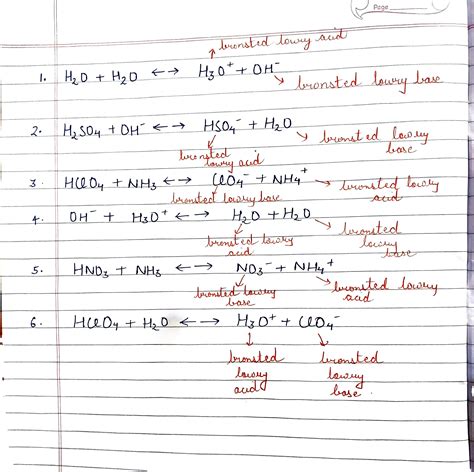 Page
bronsted lowry acid
1. H₂O + H₂O ←→ H₃O⁺ + OH⁻
bronsted lowry base
2. H₂SO₄ + OH⁻ ←→ HSO₄⁻ + H₂O
bronsted lowry acid
bronsted lowry base
3. HClO₄ + NH₃ ←→ ClO₄⁻ + NH₄⁺
bronsted lowry base
bronsted lowry acid
4. OH⁻ + H₃O⁺ ←→ H₂O + H₂O
bronsted lowry acid
bronsted lowry base
5. HNO₃ + NH₃ ←→ NO₃⁻ + NH₄⁺
bronsted lowry base
bronsted lowry acid
6. HClO₄ + H₂O ←→ H₃O⁺ + ClO₄⁻
bronsted lowry acid
bronsted lowry base.